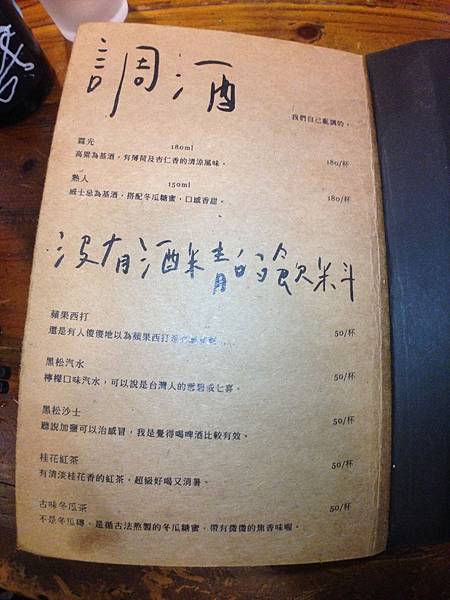 調酒
我們自己亂調的。
霞光 180ml
高粱為基酒，有薄荷及杏仁香的清涼風味。 180/杯
熟人 150ml
威士忌為基酒，搭配冬瓜糖蜜，口感香甜。 180/杯
沒有酒精的飲料
蘋果西打
還是有人傻傻地以為蘋果西打 50/杯
黑松汽水
檸檬口味汽水，可以說是台灣人的雪碧或七喜。 50/杯
黑松沙士
聽說加鹽可以治感冒，我是覺得喝啤酒比較有效。 50/杯
桂花紅茶
有清淡桂花香的紅茶，超級好喝又消暑。 50/杯
古味冬瓜茶
不是冬瓜磚，是循古法熬製的冬瓜糖蜜，帶有微微的焦香味喔。 50/杯